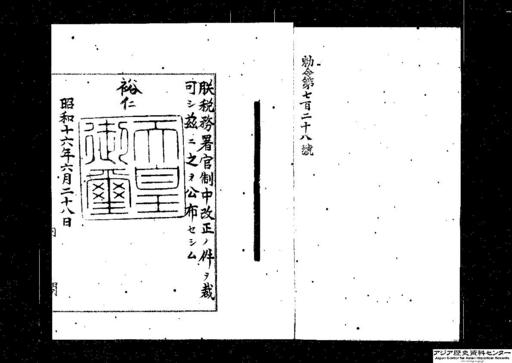 勅令第七百二十八號
朕税務署官制中改正ノ件ヲ裁
可シ茲ニ之ヲ公布セシム
裕仁
天皇
御璽
昭和十六年六月二十八日
内閣
アジア歴史資料センター
Japan Center for Asian Historical Records